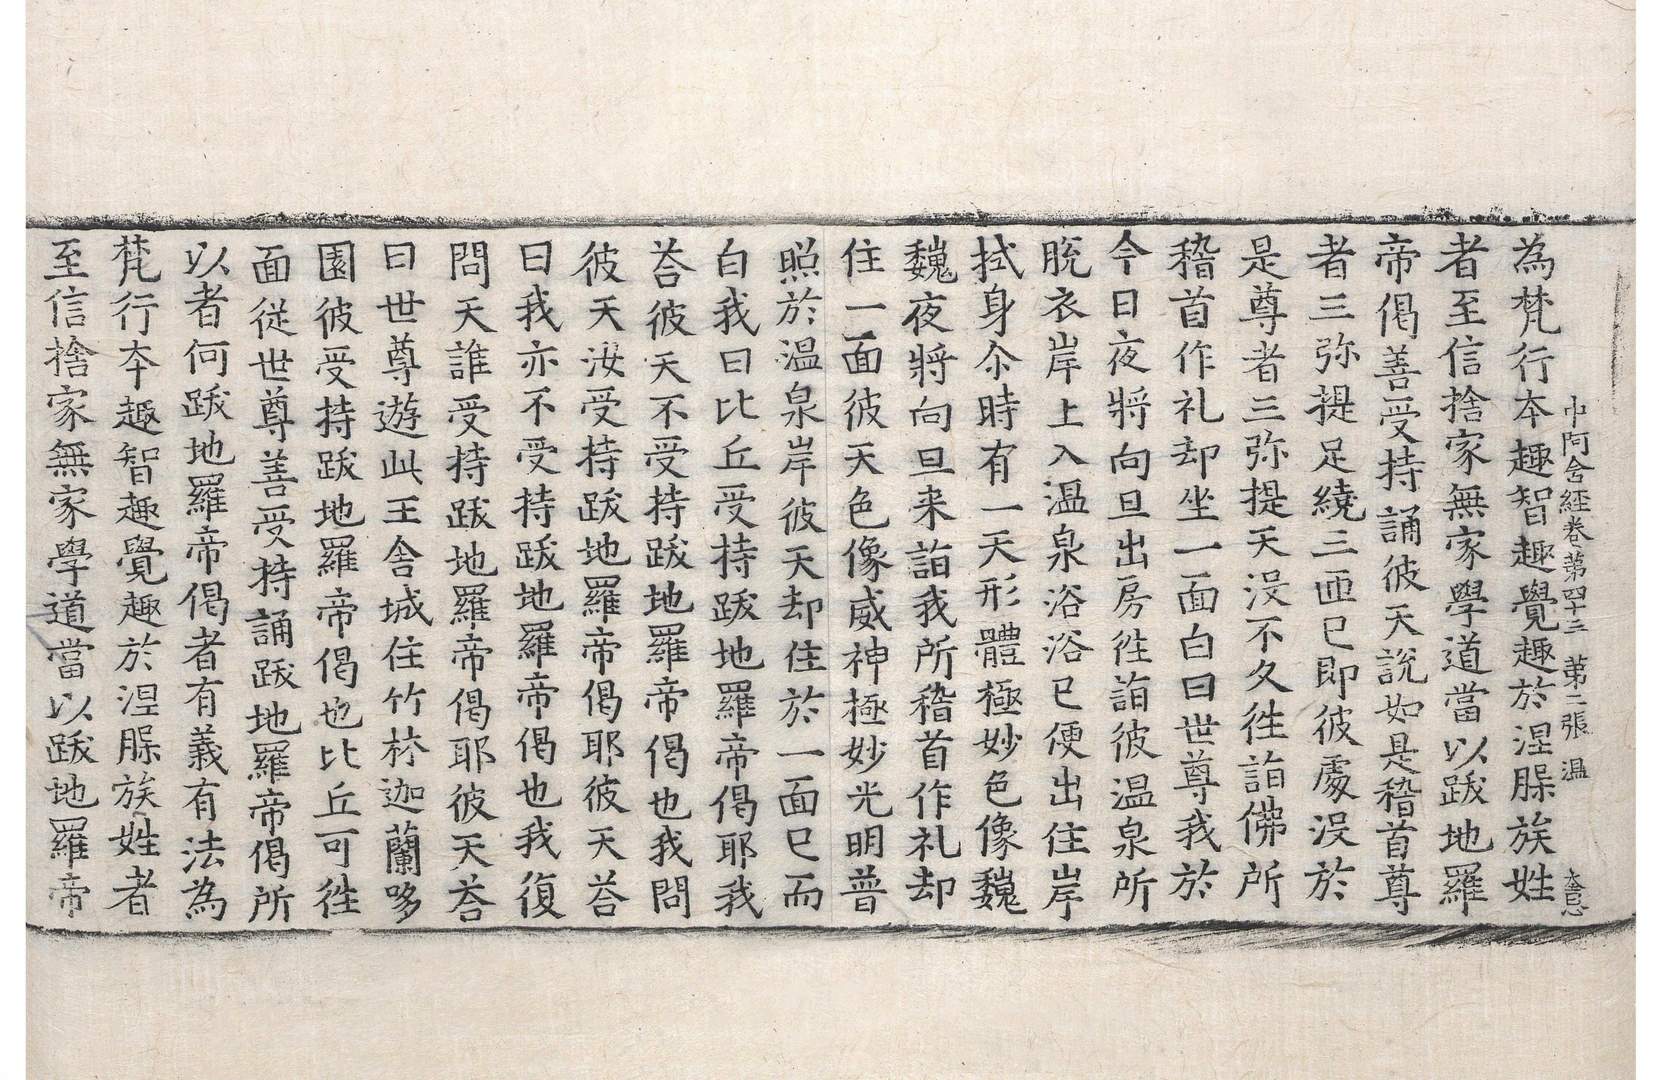 中阿含經卷第四十三　第二張　溫　大忌
為梵行本趣智趣覺趣於涅槃族姓
者至信捨家無家學道當以跋地羅
帝偈善受持誦彼天說如是稽首尊
者三弥提足繞三匝已即彼處沒於
是尊者三弥提天沒不久往詣佛所
稽首作礼却坐一面白曰世尊我於
今日夜將向旦出房往詣彼温泉所
脫衣岸上入温泉浴浴已便出住岸
拭身尒時有一天形體極妙色像巍
巍夜將向旦来詣我所稽首作礼却
住一面彼天色像威神極妙光明普
照於温泉岸彼天却住於一面已而
白我曰比丘受持跋地羅帝偈耶我
荅彼天不受持跋地羅帝偈也我問
彼天汝受持跋地羅帝偈耶彼天荅
曰我亦不受持跋地羅帝偈也我復
問天誰受持跋地羅帝偈耶彼天荅
曰世尊遊此王舍城住竹林迦蘭哆
園彼受持跋地羅帝偈也比丘可往
面從世尊善受持誦跋地羅帝偈所
以者何跋地羅帝偈者有義有法為
梵行本趣智趣覺趣於涅槃族姓者
至信捨家無家學道當以跋地羅帝